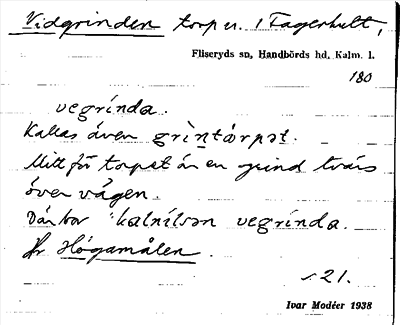 Vidgrinden torp u. 1 Fagerhult,
Fliseryds sn, Handbörds hd, Kalm. l.
180
vegrínda.
Kallas även grìntårpət.
Mitt för torpet är en grind tvärs
över vägen.
Där bor kalnílsən vegrínda.
Jfr Högamålen.
s 21.
Ivar Modéer 1938